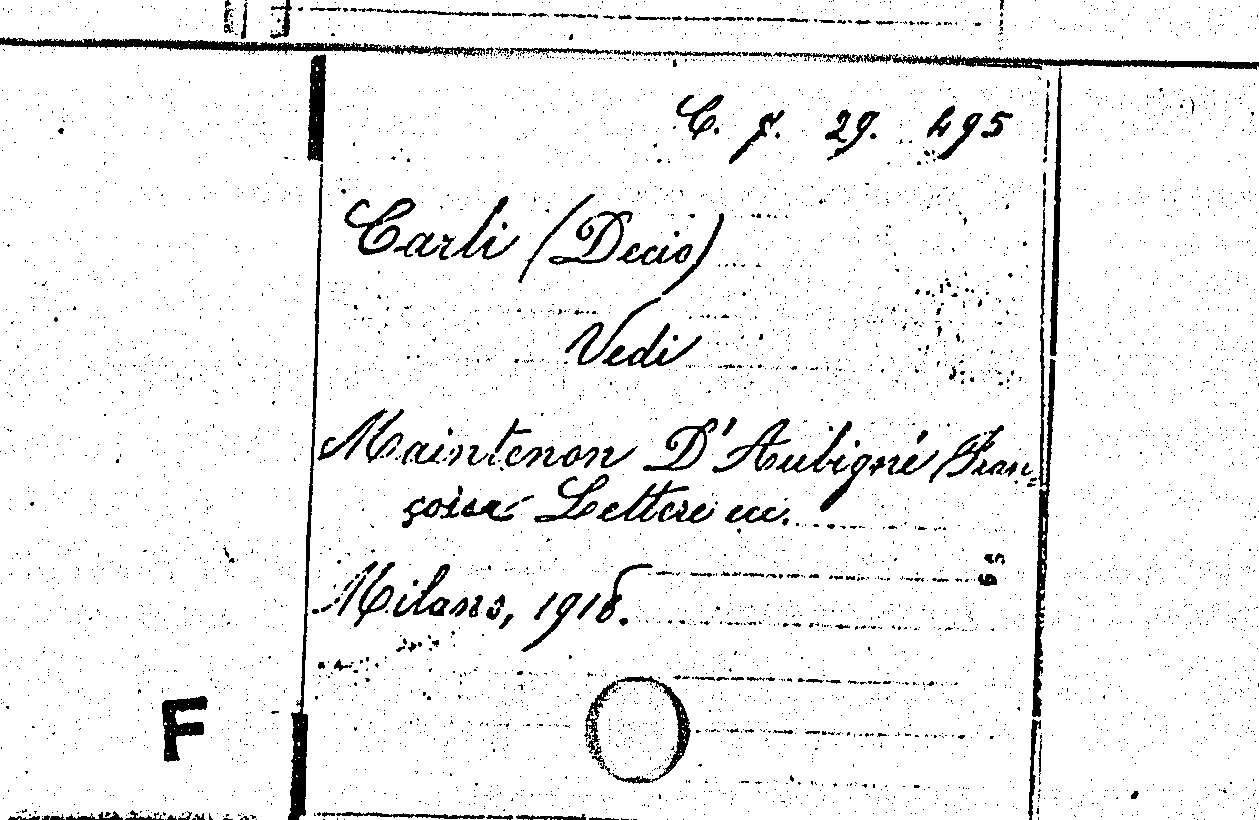 C. f. 29. 495
Carli (Decio)
Vedi
Maintenon D'Aubigné Fran-
çoise Lettere ecc.
Milano, 1918.
55
F